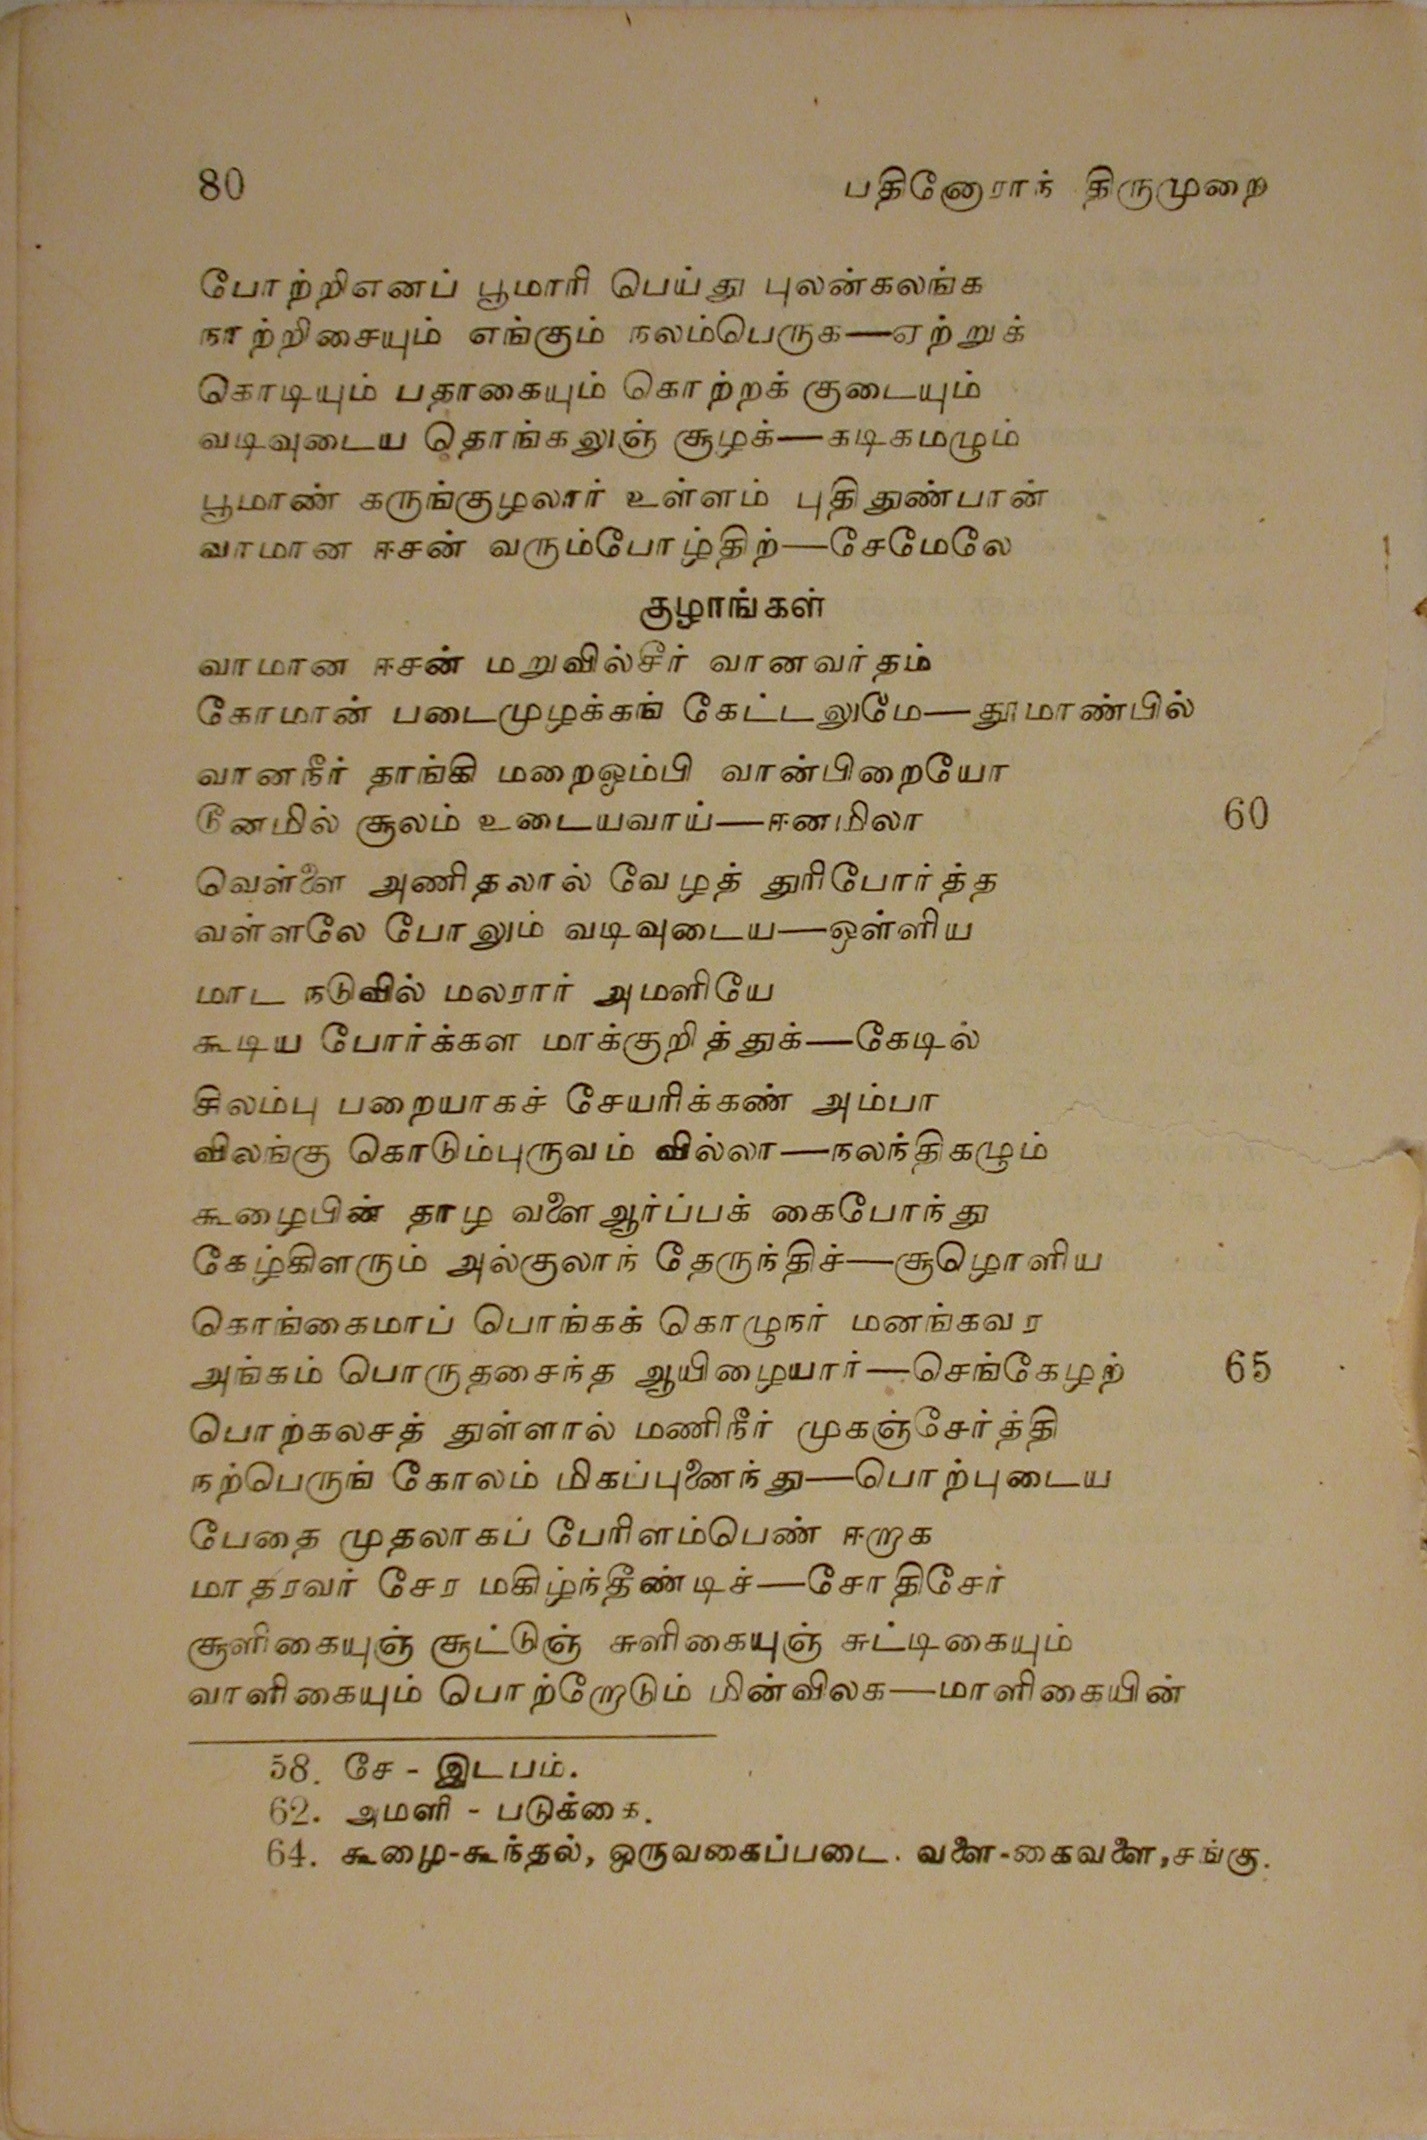 80 பதினோராந் திருமுறை
போற்றிஎனப் பூமாரி பெய்து புலன்கலங்க
நாற்றிசையும் எங்கும் நலம்பெருக—ஏற்றுக்
கொடியும் பதாகையும் கொற்றக் குடையும்
வடிவுடைய தொங்கலுஞ் சூழக்—கடிகமழும்
பூமாண் கருங்குழலார் உள்ளம் புதிதுண்பான்
வாமான ஈசன் வரும்போழ்திற்—சேமேலே
குழாங்கள்
வாமான ஈசன் மறுவில்சீர் வானவர்தம்
கோமான் படைமுழக்கங் கேட்டலுமே—தூமாண்பில்
வானநீர் தாங்கி மறைஓம்பி வான்பிறையோ
டூனமில் சூலம் உடையவாய்—ஈனமிலா 60
வெள்ளை அணிதலால் வேழத் துரிபோர்த்த
வள்ளலே போலும் வடிவுடைய—ஒள்ளிய
மாட நடுவில் மலரார் அமளியே
கூடிய போர்க்கள மாக்குறித்துக்—கேடில்
சிலம்பு பறையாகச் சேயரிக்கண் அம்பா
விலங்கு கொடும்புருவம் வில்லா—நலந்திகழும்
கூழைபின் தாழ வளைஆர்ப்பக் கைபோந்து
கேழ்கிளரும் அல்குலாந் தேருந்திச்—சூழொளிய
கொங்கைமாப் பொங்கக் கொழுநர் மனங்கவர
அங்கம் பொருதசைந்த ஆயிழையார்—செங்கேழற் 65
பொற்கலசத் துள்ளால் மணிநீர் முகஞ்சேர்த்தி
நற்பெருங் கோலம் மிகப்புனைந்து—பொற்புடைய
பேதை முதலாகப் பேரிளம்பெண் ஈறாக
மாதரவர் சேர மகிழ்ந்தீண்டிச்—சோதிசேர்
சூளிகையுஞ் சூட்டுஞ் சுளிகையுஞ் சுட்டிகையும்
வாளிகையும் பொற்றோடும் மின்விலக—மாளிகையின்
58. சே - இடபம்.
62. அமளி - படுக்கை.
64. கூழை-கூந்தல், ஒருவகைப்படை. வளை-கைவளை,சங்கு.